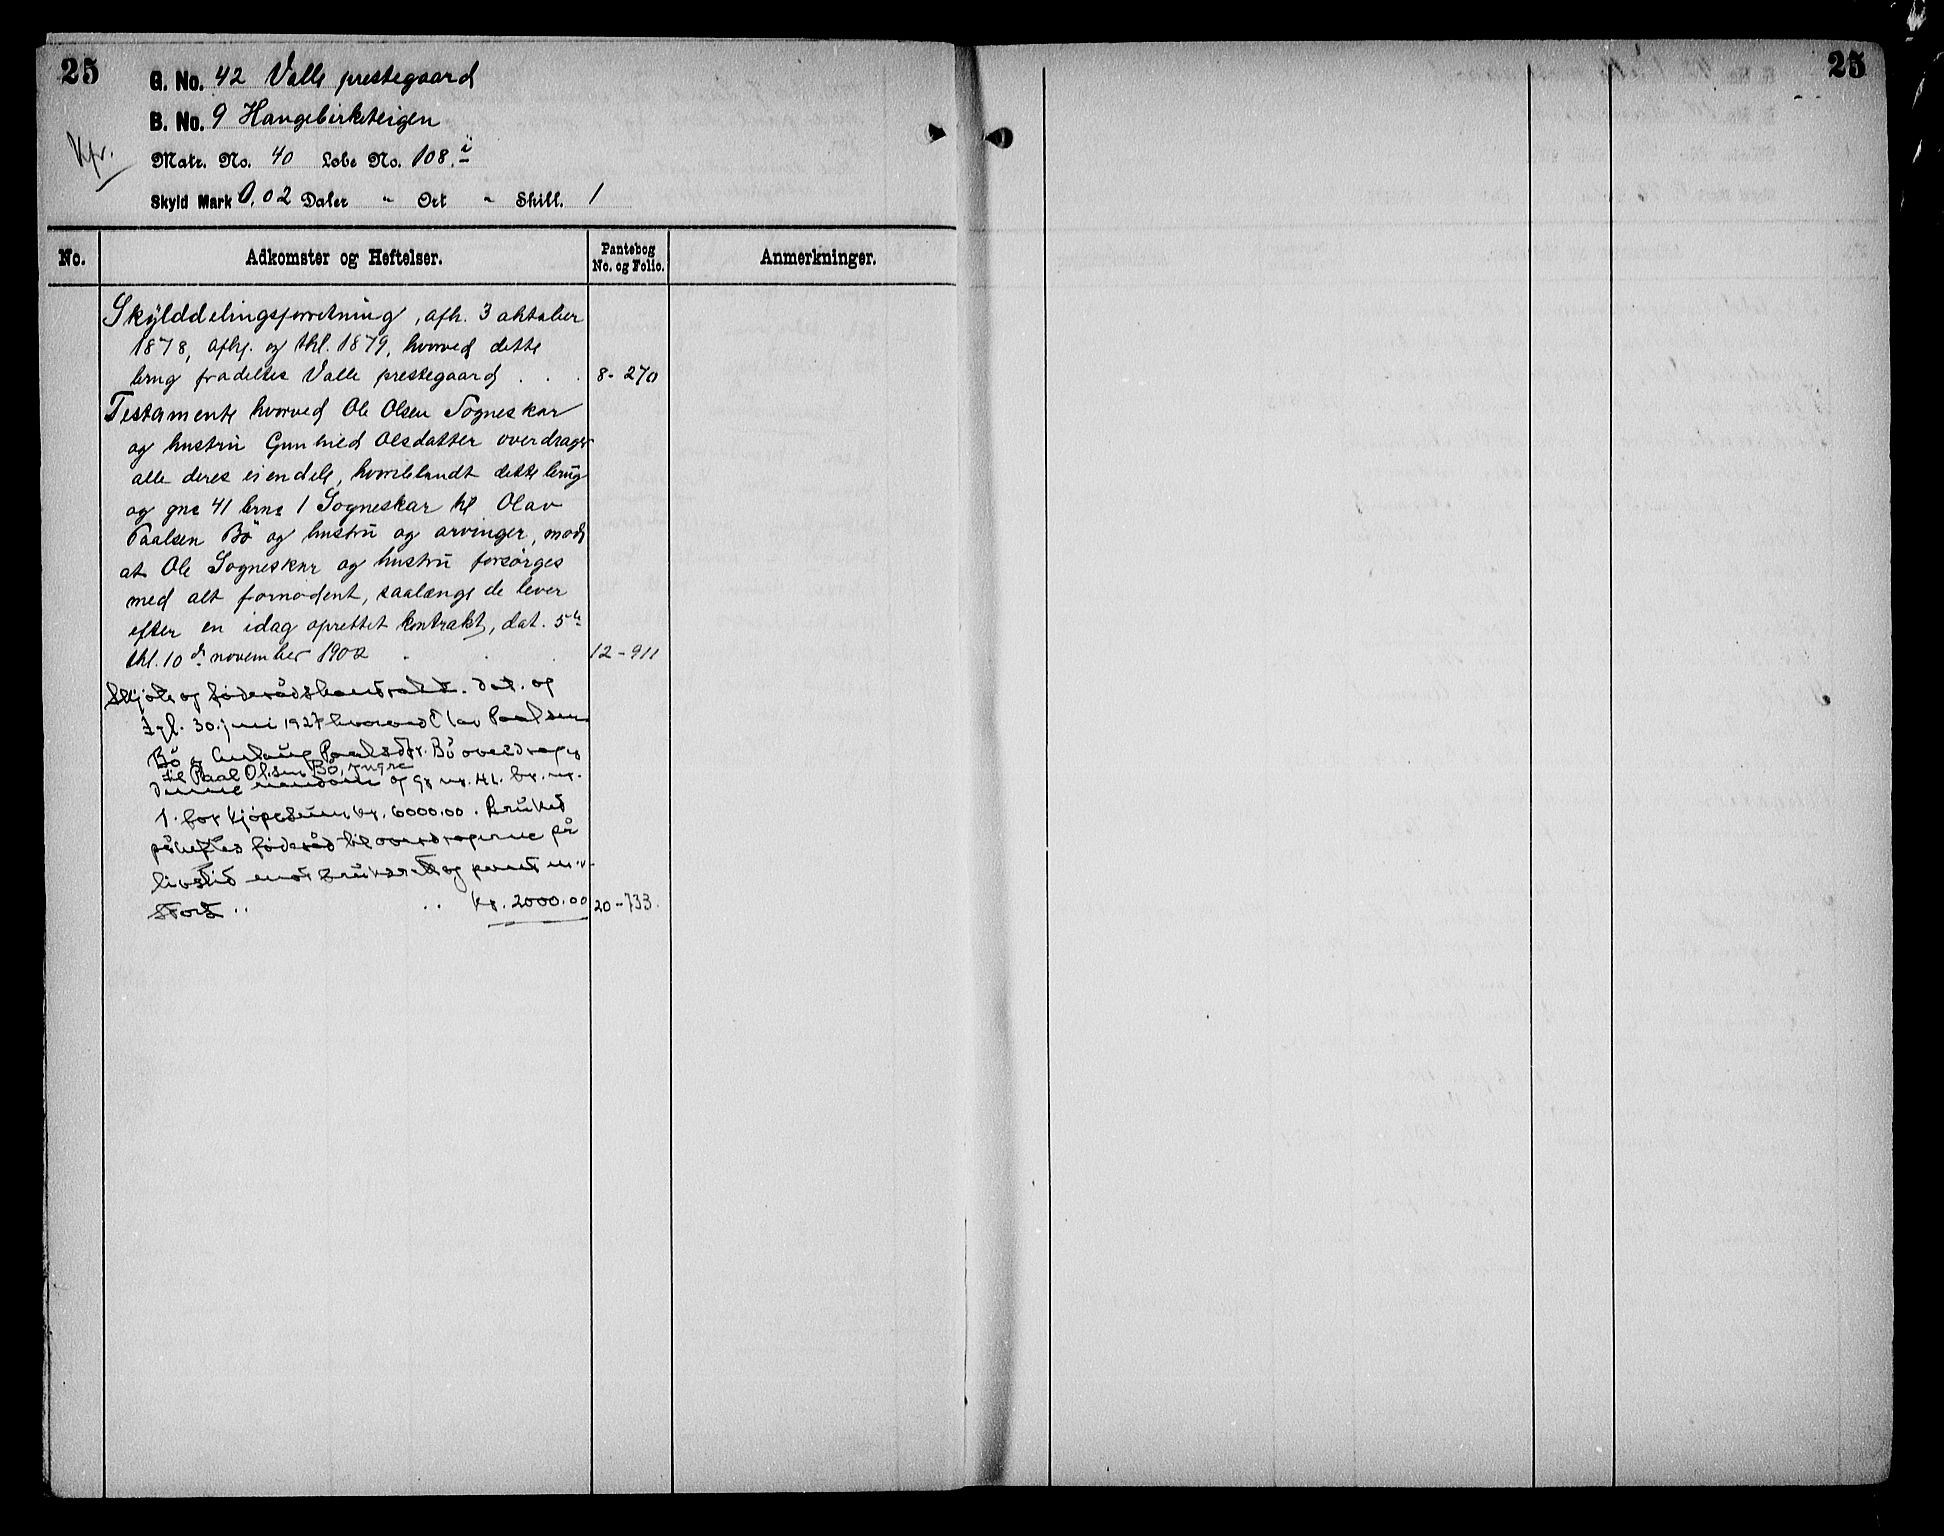 25
G. No. 42 Valle prestegaard
B. No. 9 Haugebirketeigen
Kfr.
Matr. No. 40 Løbe No. 108.i
Skyld Mark 0,02 Daler " Ort " Skill. 1
No. Adkomster og Heftelser. Pantebog No. og Folio. Anmerkninger.
Skylddelingsforretning, afh. 3 oktober
1878, afhj. og thl. 1879, hvorved dette
brug fradeltes Valle prestegaard . . . 8-270
Testamente hvorved Ole Olsen Sogneskar
og hustru Gunhild Olsdatter overdrager
alle deres eiendele, hvoriblandt dette brug
og gno 41 brno 1 Sogneskar til Olav
Paalsen Bö og hustru og arvinger, mod
at Ole Sogneskar og hustru forsörges
med alt fornödent, saalænge de lever
efter en idag oprettet kontrakt, dat. 5te
thl. 10de november 1902 . . . 12-911
Skjöte og föderådskontrakt. dat. og
tgl. 30. juni 1927 hvorved Olav Paalsen
Bö og Paalsdtr. Bö overdrager
til Paal Olsen Bö, yngre
denne eiendom og gr. nr. 41. br. nr.
1. for kjöpesum kr. 6000.00. Bruket
påheftes föderåd til overdragerne på
livstid mot bruksrett og pant
stort .. .. kr. 2000.00 20-733.
25